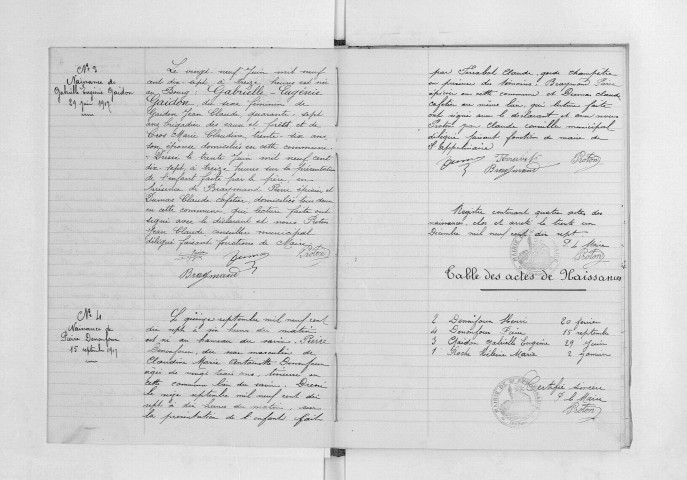 N° 3
Naissance de
Gabrielle Eugénie Gaidon
29 Juin 1917
Le vingt neuf Juin mil neuf
cent dix-sept à treize heures est née
au Bourg : Gabrielle - Eugénie
Gaidon du sexe féminin de
Gaidon Jean Claude quarante-sept
ans brigadier des eaux et forêt et de
Cros Marie Claudine trente six ans
son épouse domiciliés en cette commune
Dressé le trente Juin mil neuf cent
dix sept, à treize heures sur la présentation
de l'enfant faite par le père, en
présence de Braymand Pierre épicier et
Dumas Claude cafetier, domiciliés tous deux
en cette commune, qui lecture faite ont
signé avec le déclarant et nous Proton
Jean Claude conseiller municipal
délégué faisant fonctions de Maire
Dumas Proton
Braymand
N° 4
Naissance de
Pierre
15 septembre 1917
Le quinze septembre mil neuf cent
dix sept à dix heures du matin
est né au hameau du : Pierre
du sexe masculin de
Claudine Marie Antoinette
âgée de vingt trois ans,
cette commune lieu du Dressé
le seize septembre mil neuf cent dix
sept à dix heures du matin, sur
la présentation de l'enfant faite
par Claude garde champêtre
en présence des témoins, Braymand Pierre
épicier en cette commune et Dumas Claude
cafetier au même lieu, qui lecture faite
ont signé avec le déclarant et avec nous
Proton Jean Claude conseiller municipal
délégué faisant fonction de maire de
St Appolinaire
Dumas Proton
Braymand
Registre contenant quatre actes de
naissances, clos et arrêté le trente un
Décembre mil neuf cent dix sept
P. le Maire
Proton
Table des actes de Naissances
2 Henri 20 février
4 15 septembre
3 Gaidon Gabrielle Eugénie 29 Juin
1 Roche Hélène Marie 2 Janvier
Certifié sincère
P. le Maire
Proton